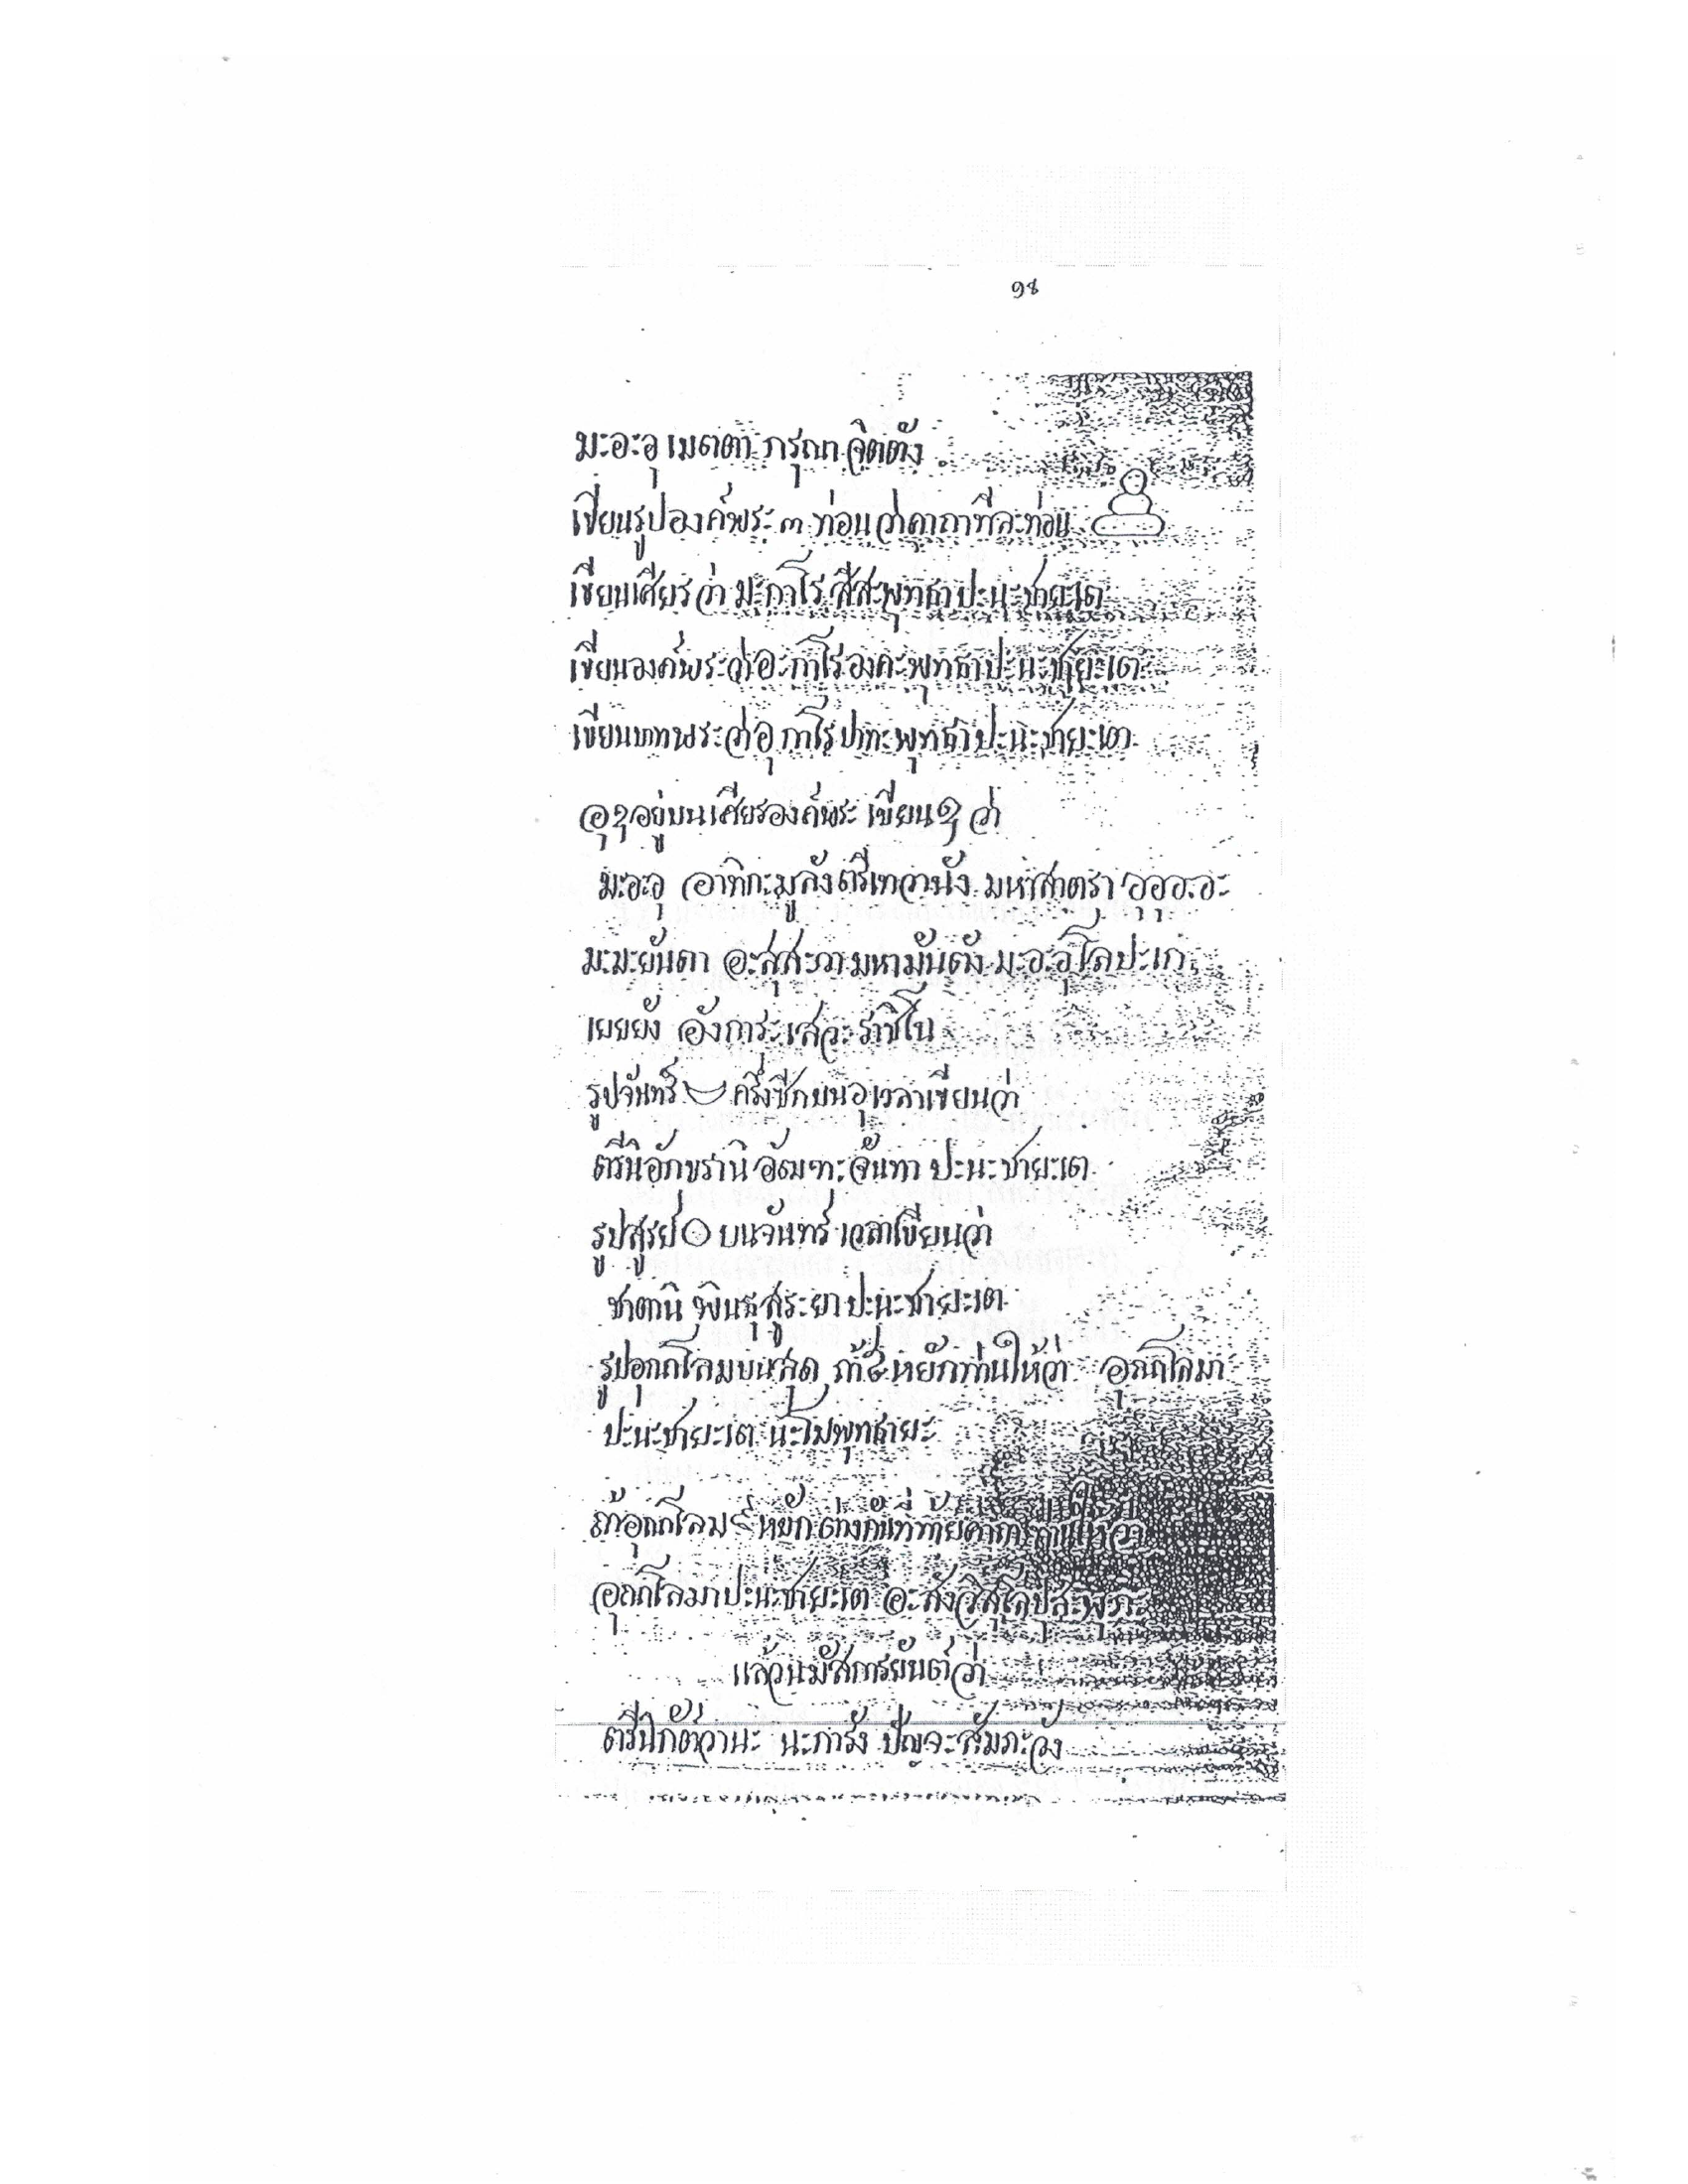 ๑๘
มะอะอุ เมตตา กรุณา จิตตัง
เขียนรูปองค์พระ ๓ ท่อน ว่าคาถาทีละท่อน
เขียนเศียรว่า มะกาโร สีสะพุทธาปะนะชายะเต
เขียนองค์พระว่าอะกาโรองคะพุทธาปะนะชายะเต
เขียนบาทพระว่าอุกาโรปาทะพุทธาปะนะชายะเต
อุ อยู่บนเศียรองค์พระ เขียน ว่า
มะอะอุ อาทิกะมูลังตรีเทวานัง มหาสาตรา อุอุอะอะ
มะมะยันตา อะสุสะวา มหามันตัง มะอะอุโลปะเก
เยยยัง อังการะเสวะราชิโน
รูปจันทร์ ครึ่งซีกบนอุเวลาเขียนว่า
ตรีนิอักขรานิ อัฒฑะจันทา ปะนะชายะเต
รูปสูรย์ บนจันทร์ เวลาเขียนว่า
ชาตานิ พินธุสูระยาปะนะชายะเต
รูปอุณาโลมบนสุด ถ้า ๕ หยักท่านให้ว่า อุณาโลมา
ปะนะชายะเต นะโมพุทธายะ
ถ้าอุณาโลม ๙ หยัก ต่างกันที่ท้ายคาถาท่านให้ว่า
อุณาโลมาปะนะชายะเต อะสังวิสุโลปุสะพุภะ
แล้วนมัสการยันต์ว่า
ตรีนิกัตวานะ นะการัง ปัญจะสัมภะวัง